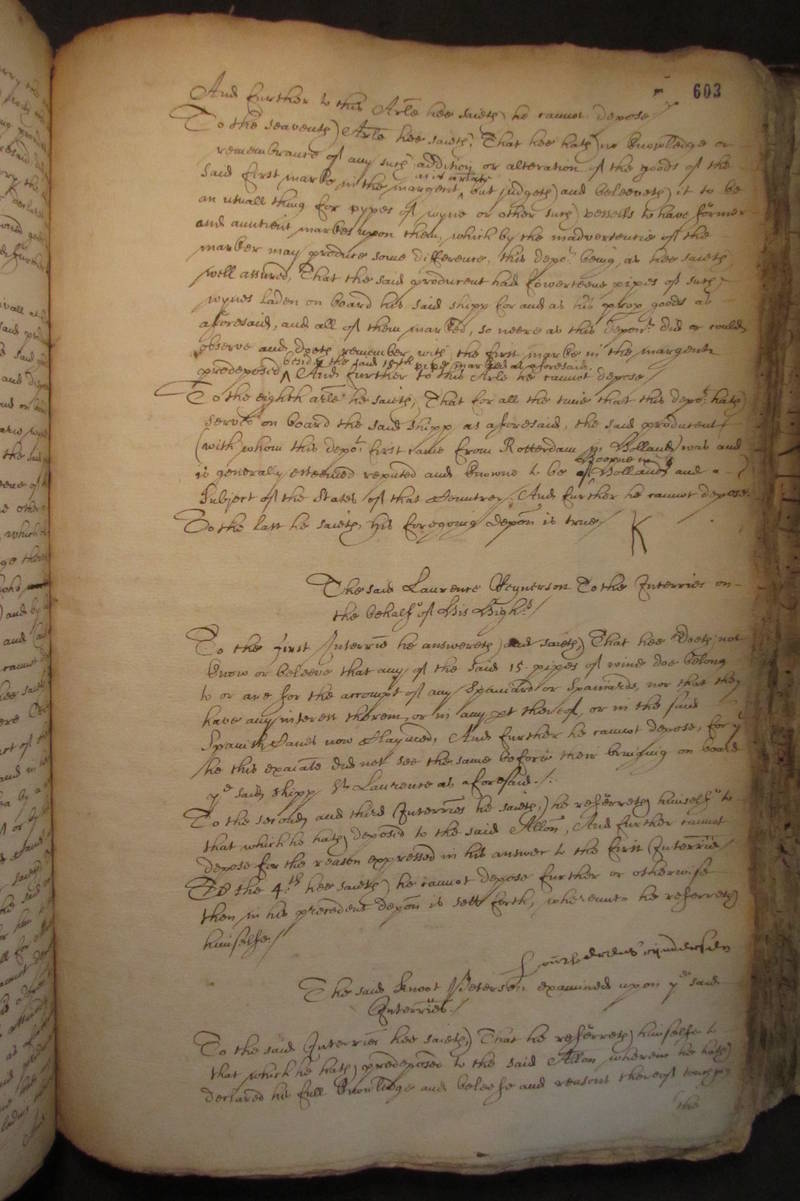 603
And further to this Arle hee saieth he cannot depose
To the seaventh Arle hee saieth, That hee hath no knowledge or
remembrance of any such addition or alteration of the goods of the
said first marke in the margent as is arlate but judgeth and beleeveth it to be
an usuall thing for pypes of wyne or other such vessells to have former
and auntient markes upon them, which by the inadvertencie of the
marker may produce some difference, this depot being, as hee saieth
well assured, That the said producent had fowerteene pipes of such
wynes laden on board his said shipp for and as his prop goods as
aforesaid, and all of them marked, so neere as this deponent did or could
observe and doeth remember with the first marke in the margent
predeposed besides the said 15th pipe marked as aforesaid. And further to this Arle he cannot depose
To the eighth arle he saieth, That for all the time that this depot hath
served on board the said shipp as aforesaid, the said producent
(with whom this depot first came from Rotterdam in Holland) was and
is generally esteemed reputed and knowne to be of Holland and a
Subject of the States of that Countrey, And further he cannot depose
To the last he saieth, his foregoing depon is true
The said Laurence Reynerson To the Interries on
the behalf of His Highs
To the first Interrie he answereth and saieth, That hee doeth not
know or beleeve that any of the said 15 pipes of wine doe belong
to or are for the accompt of any Spaniard or Spaniards, nor that they
have any interest therein, or in any pt thereof, or in the said
Spanish And further he cannot depose, for yt
he this examate did not see the same before their bringing on board
ye said shipp St Laurence as aforesaid./.
To the second and third Interries he saieth, he referreth himself to
that which he hath deposed to the said Allon, And further cannot
depose for the reason expressed in his answer to the first Interrie
To the 4th hee saieth he cannot depose further or otherwise
then in his precedent depon is sett forth, whereunto he referreth
himselfe
The said Knoot Peterson examined upon ye said
Interries
To the said Interries hee saieth, That he referreth himselfe to
that which he hath predeposed to the said Allon wherein he hath
declared his full knowledge and beleefe and reasons thereof
the